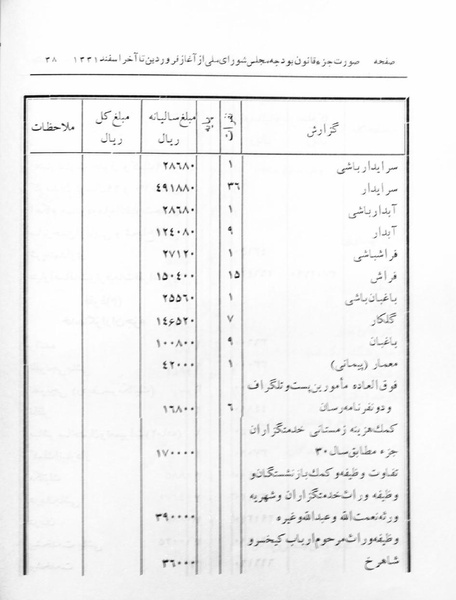 صفحه صورت جزء قانون بودجه مجلس شورای ملی از آغاز فروردین تا آخر اسفند ۱۳۳۱ ۳۸
گزارش نفرات رتبه مبلغ سالیانه ریال مبلغ کل ریال ملاحظات
سرایدار باشی ۱ ۲۸۶۸۰
سرایدار ۳۶ ۴۹۱۸۸۰
آبدار باشی ۱ ۲۸۶۸۰
آبدار ۹ ۱۲۴۰۸۰
فراشباشی ۱ ۲۷۱۲۰
فراش ۱۵ ۱۵۰۴۰۰
باغبان باشی ۱ ۲۵۵۶۰
گلکار ۷ ۱۴۶۵۲۰
باغبان ۹ ۱۰۰۸۰۰
معمار (پیمانی) ۱ ۴۲۰۰۰
فوق العاده مأمورین پست و تلگراف
و دو نفر نامه رسان ۶ ۱۶۸۰۰
کمک هزینه زمستانی خدمتگزاران
جزء مطابق سال ۳۰ ۱۷۰۰۰۰
تفاوت وظیفه و کمک بازنشستگان و
وظیفه وراث خدمتگزاران و شهریه
ورثه نعمت الله و عبدالله و غیره ۳۹۰۰۰۰
وظیفه وراث مرحوم ارباب کیخسرو
شاهرخ ۳۶۰۰۰